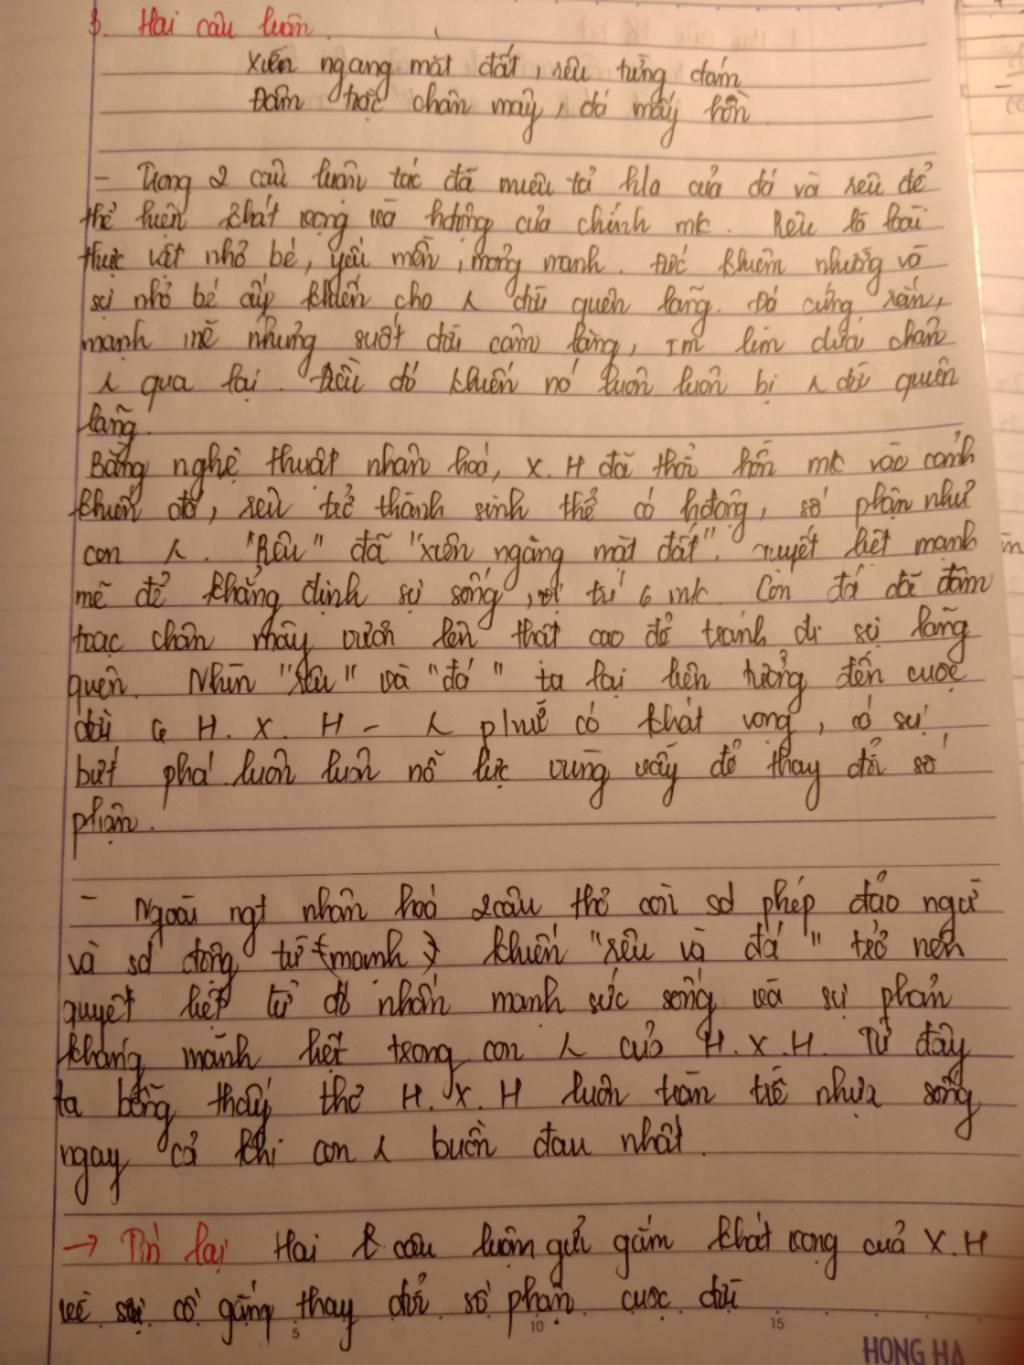 3. Hai câu luận.
Xiên ngang mặt đất, rêu từng đám
Đâm toạc chân mây, đá mấy hòn
- Trong 2 câu luận tác đã miêu tả hả của đá và rêu để
thể hiện khát vọng và hđộng của chính mk. Rêu là loài
thực vật nhỏ bé, yếu mềm, mỏng manh. khiêm nhường và
sự nhỏ bé ấy khiến cho λ đời quên lãng. Đá cứng rắn,
mạnh mẽ nhưng suốt đời câm lặng, im lìm dưới chân
λ qua lại. Điều đó khiến nó luôn luôn bị λ đời quên
lãng.
Bằng nghệ thuật nhân hoá, X.H đã thổi hồn mk vào cảnh
khiến đá, rêu trở thành sinh thể có hđộng, số phận như
con λ. "Rêu" đã "xiên ngang mặt đất". quyết liệt mạnh
mẽ để khẳng định sự sống, vị trí of mk. Còn đá đã đâm
toạc chân mây vươn lên thật cao để tránh đi sự lãng
quên. Nhìn "rêu" và "đá" ta lại liên tưởng đến cuộc
đời of H.X.H - λ p/nữ có khát vọng, có sự
bứt phá luôn luôn nỗ lực vùng vẫy để thay đổi số
phận.
- Ngoài ngt nhân hoá 2 câu thơ còn sd phép đảo ngữ
và sd động từ (mạnh) khiến "rêu và đá" trở nên
quyết liệt từ đó nhấn mạnh sức sống và sự phản
kháng mãnh liệt trong con λ của H.X.H. Từ đây
ta bỗng thấy thơ H.X.H luôn tràn trề nhựa sống
ngay cả khi con λ buồn đau nhất.
→ Tm lại Hai câu luận gửi gắm khát vọng của X.H
về sự cố gắng thay đổi số phận cuộc đời
5 10 15
HONG HA